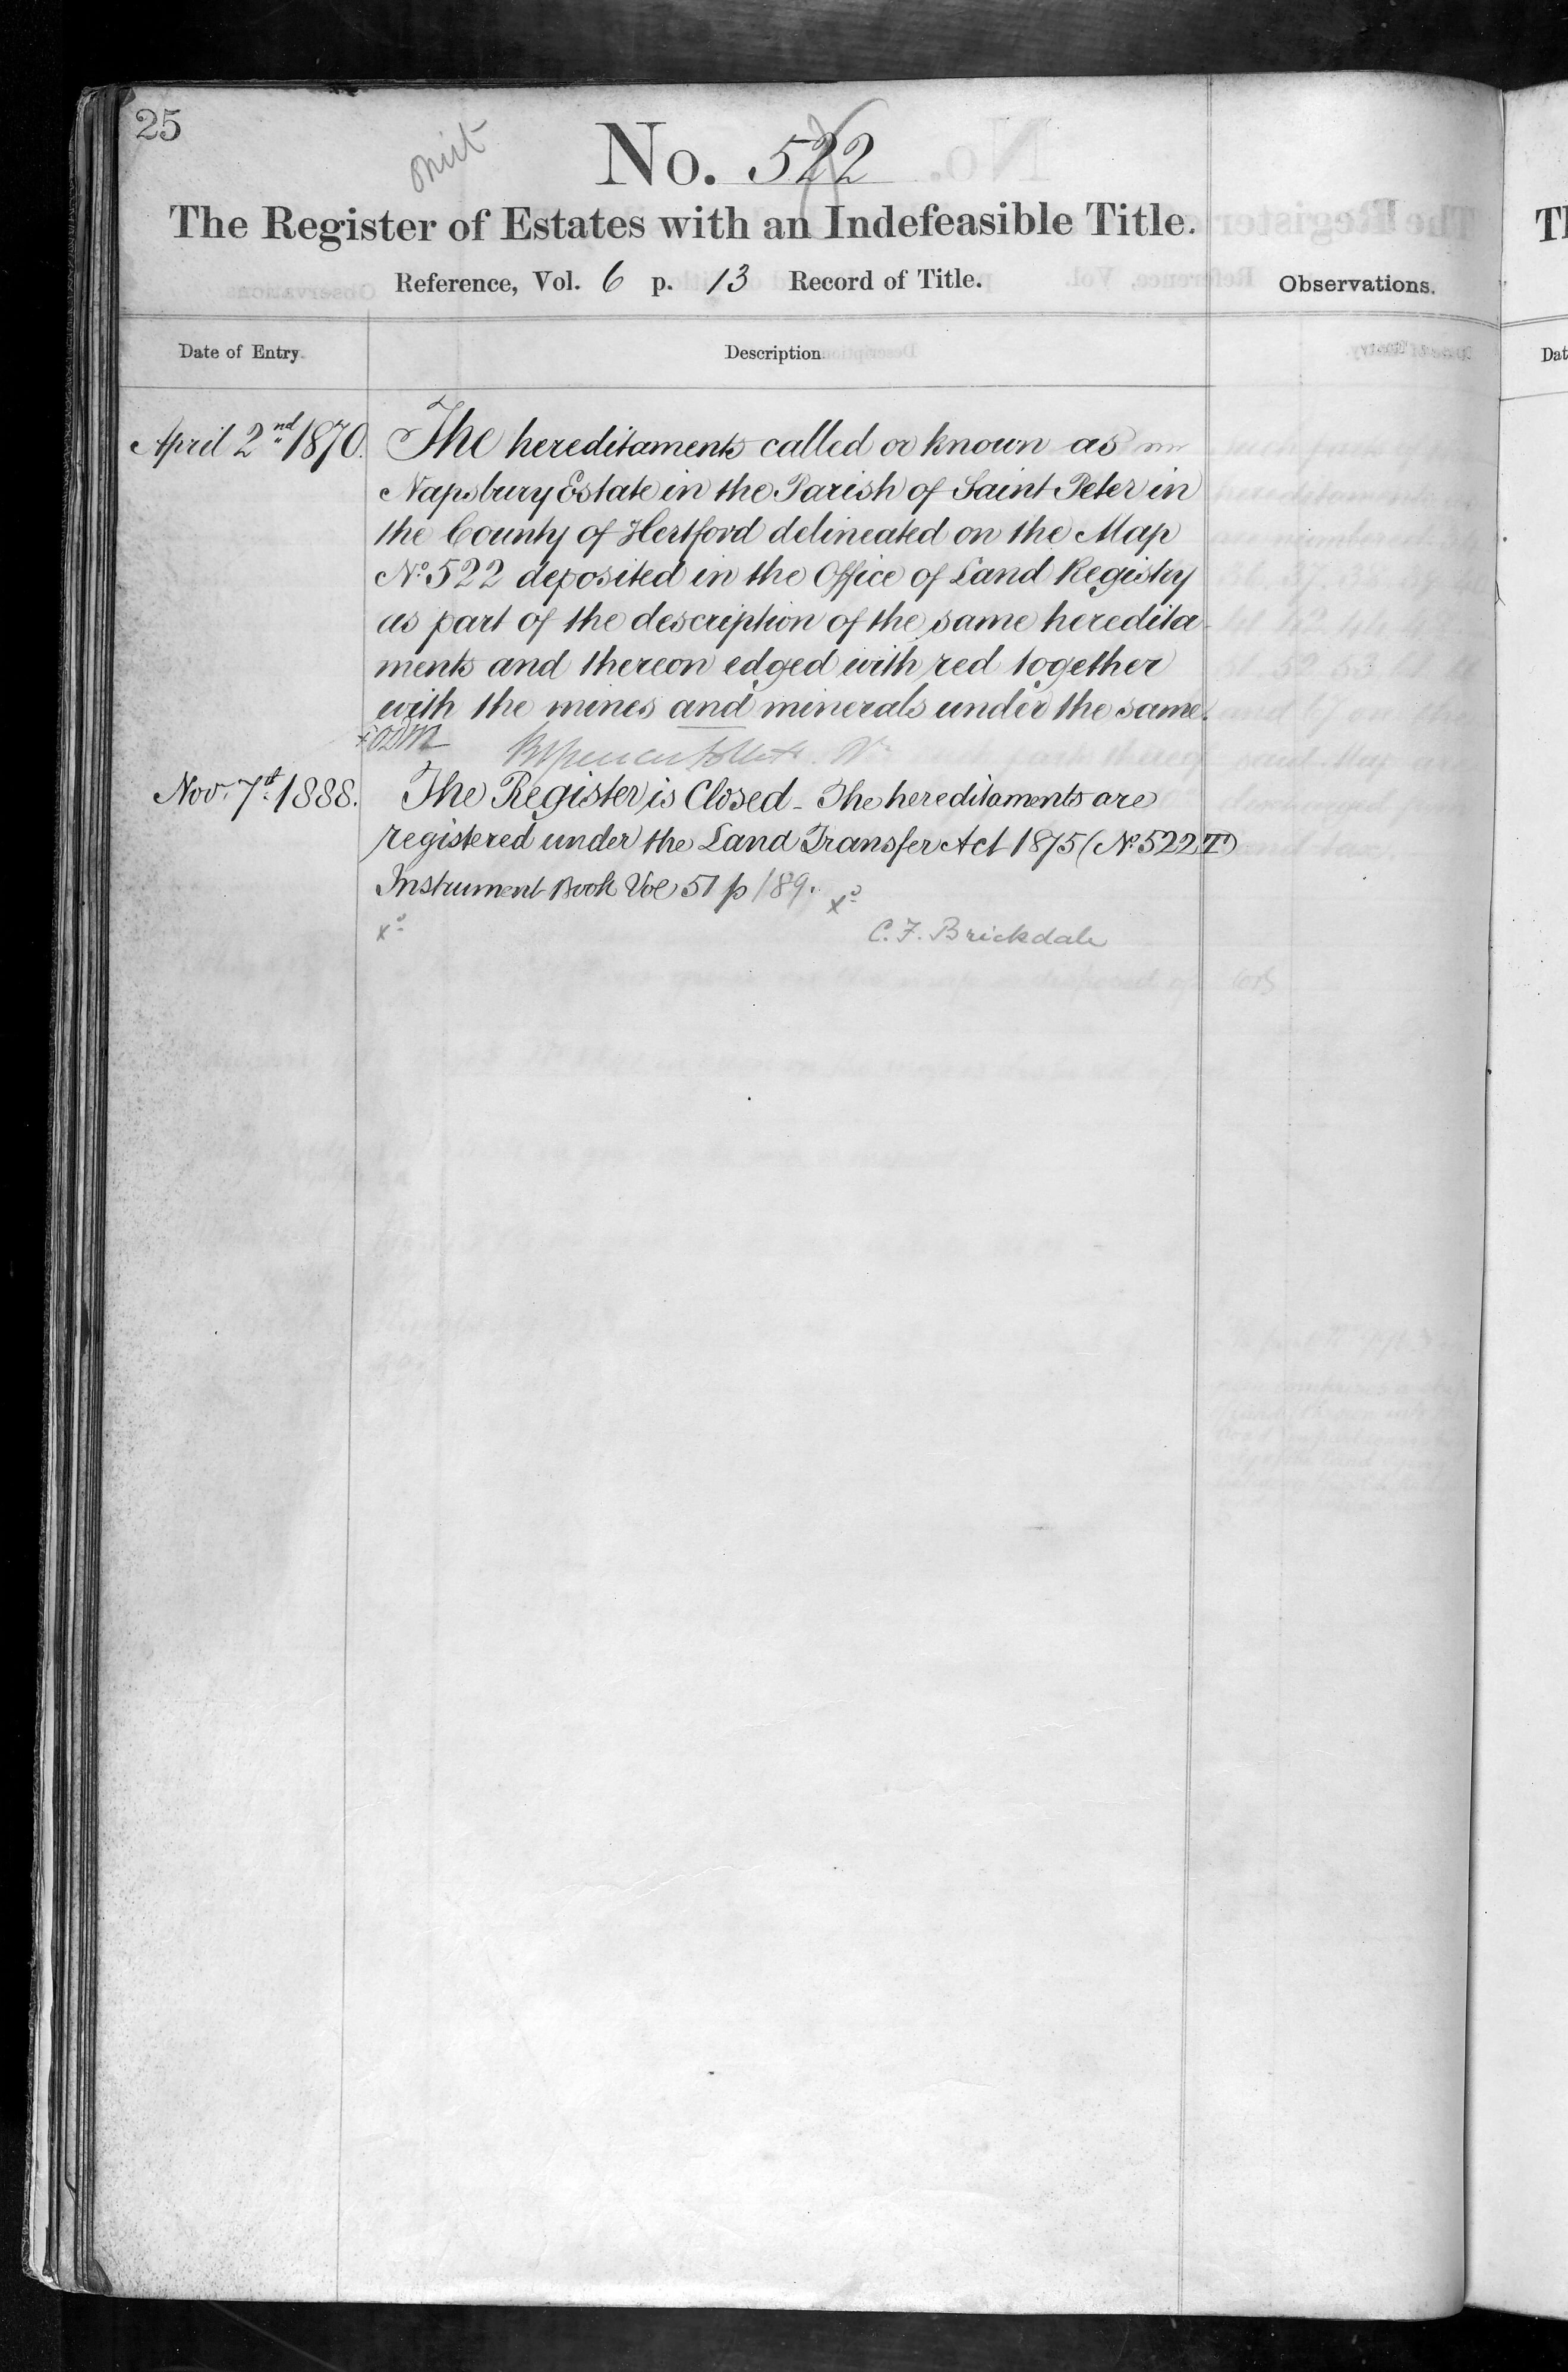 25
omit
No. 522
The Register of Estates with an Indefeasible Title.
Reference, Vol. 6 p. 13 Record of Title.
Observations.
Date of Entry.
Description
April 2nd 1870.
The hereditaments called or known as
Napsbury Estate in the Parish of Saint Peter in
the County of Hertford delineated on the Map
No. 522 deposited in the Office of Land Registry
as part of the description of the same heredita-
ments and thereon edged with red together
with the mines and minerals under the same.
Nov. 7th 1888.
The Register is Closed - The hereditaments are
registered under the Land Transfer Act 1875 (No. 522 T)
Instrument Book Vol 51 p 189.
C. F. Brickdale